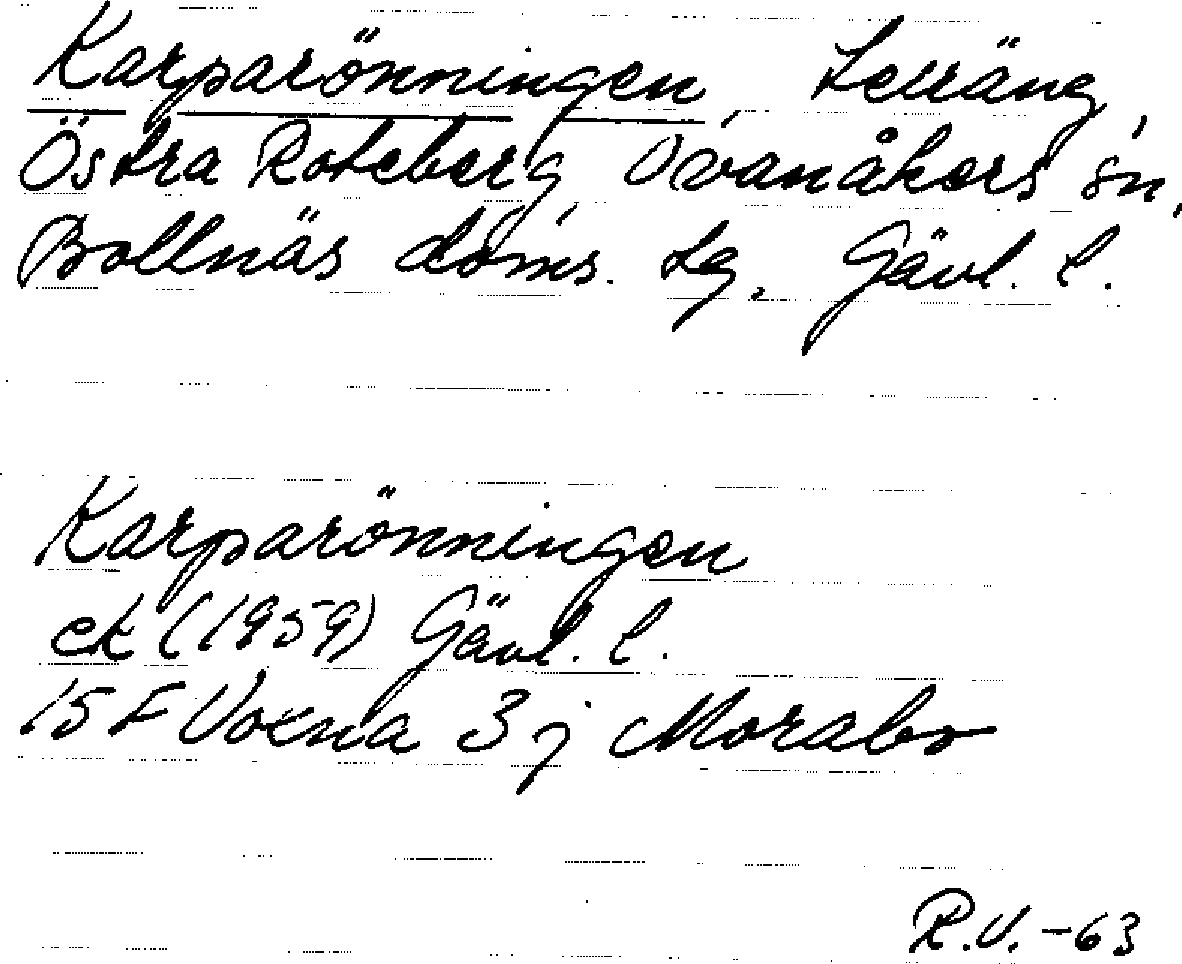 Karparönningen, Lelläng,
Östra Roteberg, Ovanåkers sn,
Bollnäs doms. tg, Gävl. l.
Karparönningen
ek (1959) Gävl. l.
15 F Voxna 3 j Morabo
R.V. -63